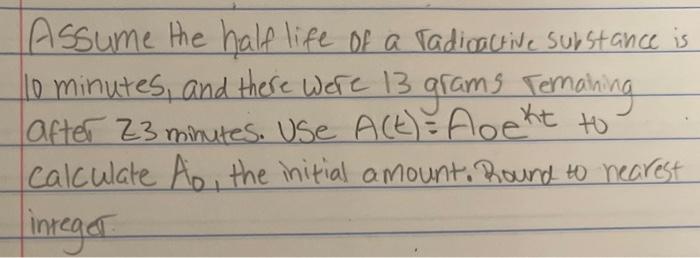 Assume the half life of a radioactive substance is
10 minutes, and there were 13 grams remaning
after 23 minutes. Use A(t) = A₀eᵏᵗ to
calculate A₀, the initial amount. Round to nearest
integer.